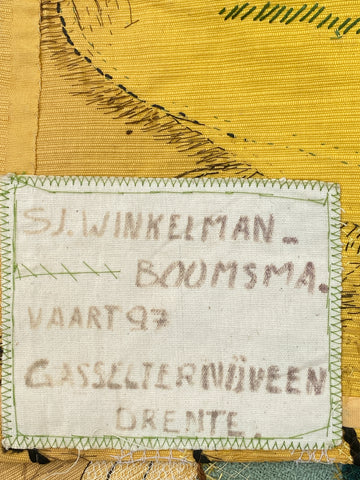 SJ. WINKELMAN-
BOOMSMA.
VAART 97
GASSELTERNIJVEEN
DRENTE.